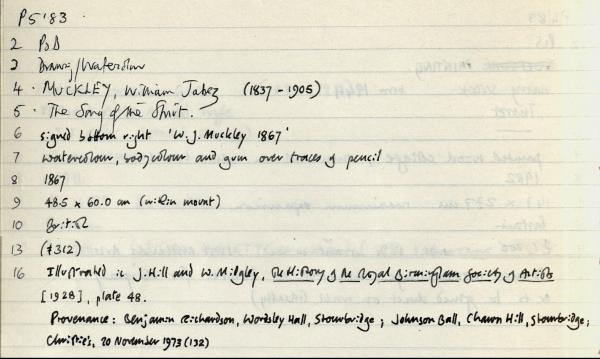 P5'83
2 P&D
3 Drawing/Watercolour
4 · MUCKLEY, William Jabez (1837-1905)
5 · The Song of the Shirt.
6 signed bottom right 'W.J. Muckley 1867'
7 watercolour, bodycolour and gum over traces of pencil
8 1867
9 48.5 x 60.0 cm (within mount)
10 British
13 (£312)
16 Illustrated in J. Hill and W. Midgley, The History of the Royal Birmingham Society of Artists
[1928], plate 48.
Provenance: Benjamin Richardson, Wordsley Hall, Stourbridge; Johnson Ball, Chawn Hill, Stourbridge;
Christie's, 20 November 1973 (132)